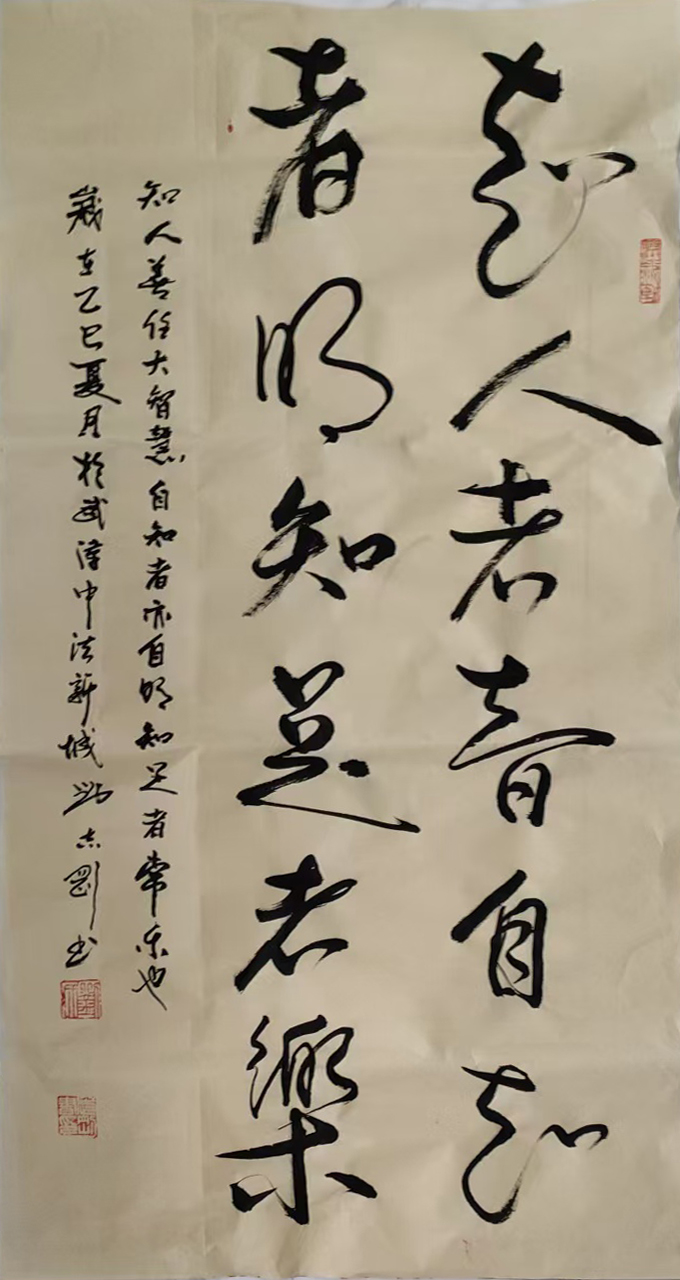 知人者智自知
者明知足者樂
知人善任大智慧自知者亦自明知足者常乐也
歲在乙巳夏月於武漢中法新城劉志剛书